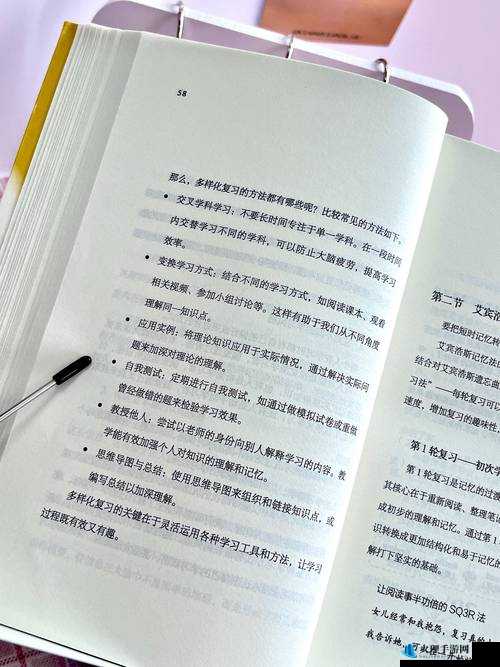 58
那么，多样化复习的方法都有哪些呢？比较常见的方法如下。
• 交叉学科学习：不要长时间专注于单一学科。在一段时间
内交替学习不同的学科，可以防止大脑疲劳，提高学习
效率。
• 变换学习方式：结合不同的学习方式，如阅读课本、观看
相关视频、参加小组讨论等。这样有助于我们从不同角度
理解同一知识点。
• 应用实例：将理论知识应用于实际情况，通过解决实际问
题来加深对理论的理解。
• 自我测试：定期进行自我测试，如通过做模拟试卷或重做
曾经做错的题来检验学习效果。
• 教授他人：尝试以老师的身份向别人解释学习的内容。教
学能有效加强个人对知识的理解和记忆。
• 思维导图与总结：使用思维导图来组织和链接知识点，或
编写总结以加深理解。
多样化复习的关键在于灵活运用各种学习工具和方法，让学习
过程既有效又有趣。
第二节 艾宾浩
要把短时记忆转
艾宾浩斯记忆法
结合对艾宾浩斯遗忘
习法”——每轮复习可以
速度，增加复习的趣味性，
第1轮复习——初次学
第1轮复习是记忆的过渡
其核心在于重新阅读、整理笔记
成初步的理解和记忆。通过第1
识转换成更加结构化和易于记忆的
解打下坚实的基础。
让阅读事半功倍的SQ3R法
女儿经常和我抱怨，复习真的
我告诉她，
火熠手游网